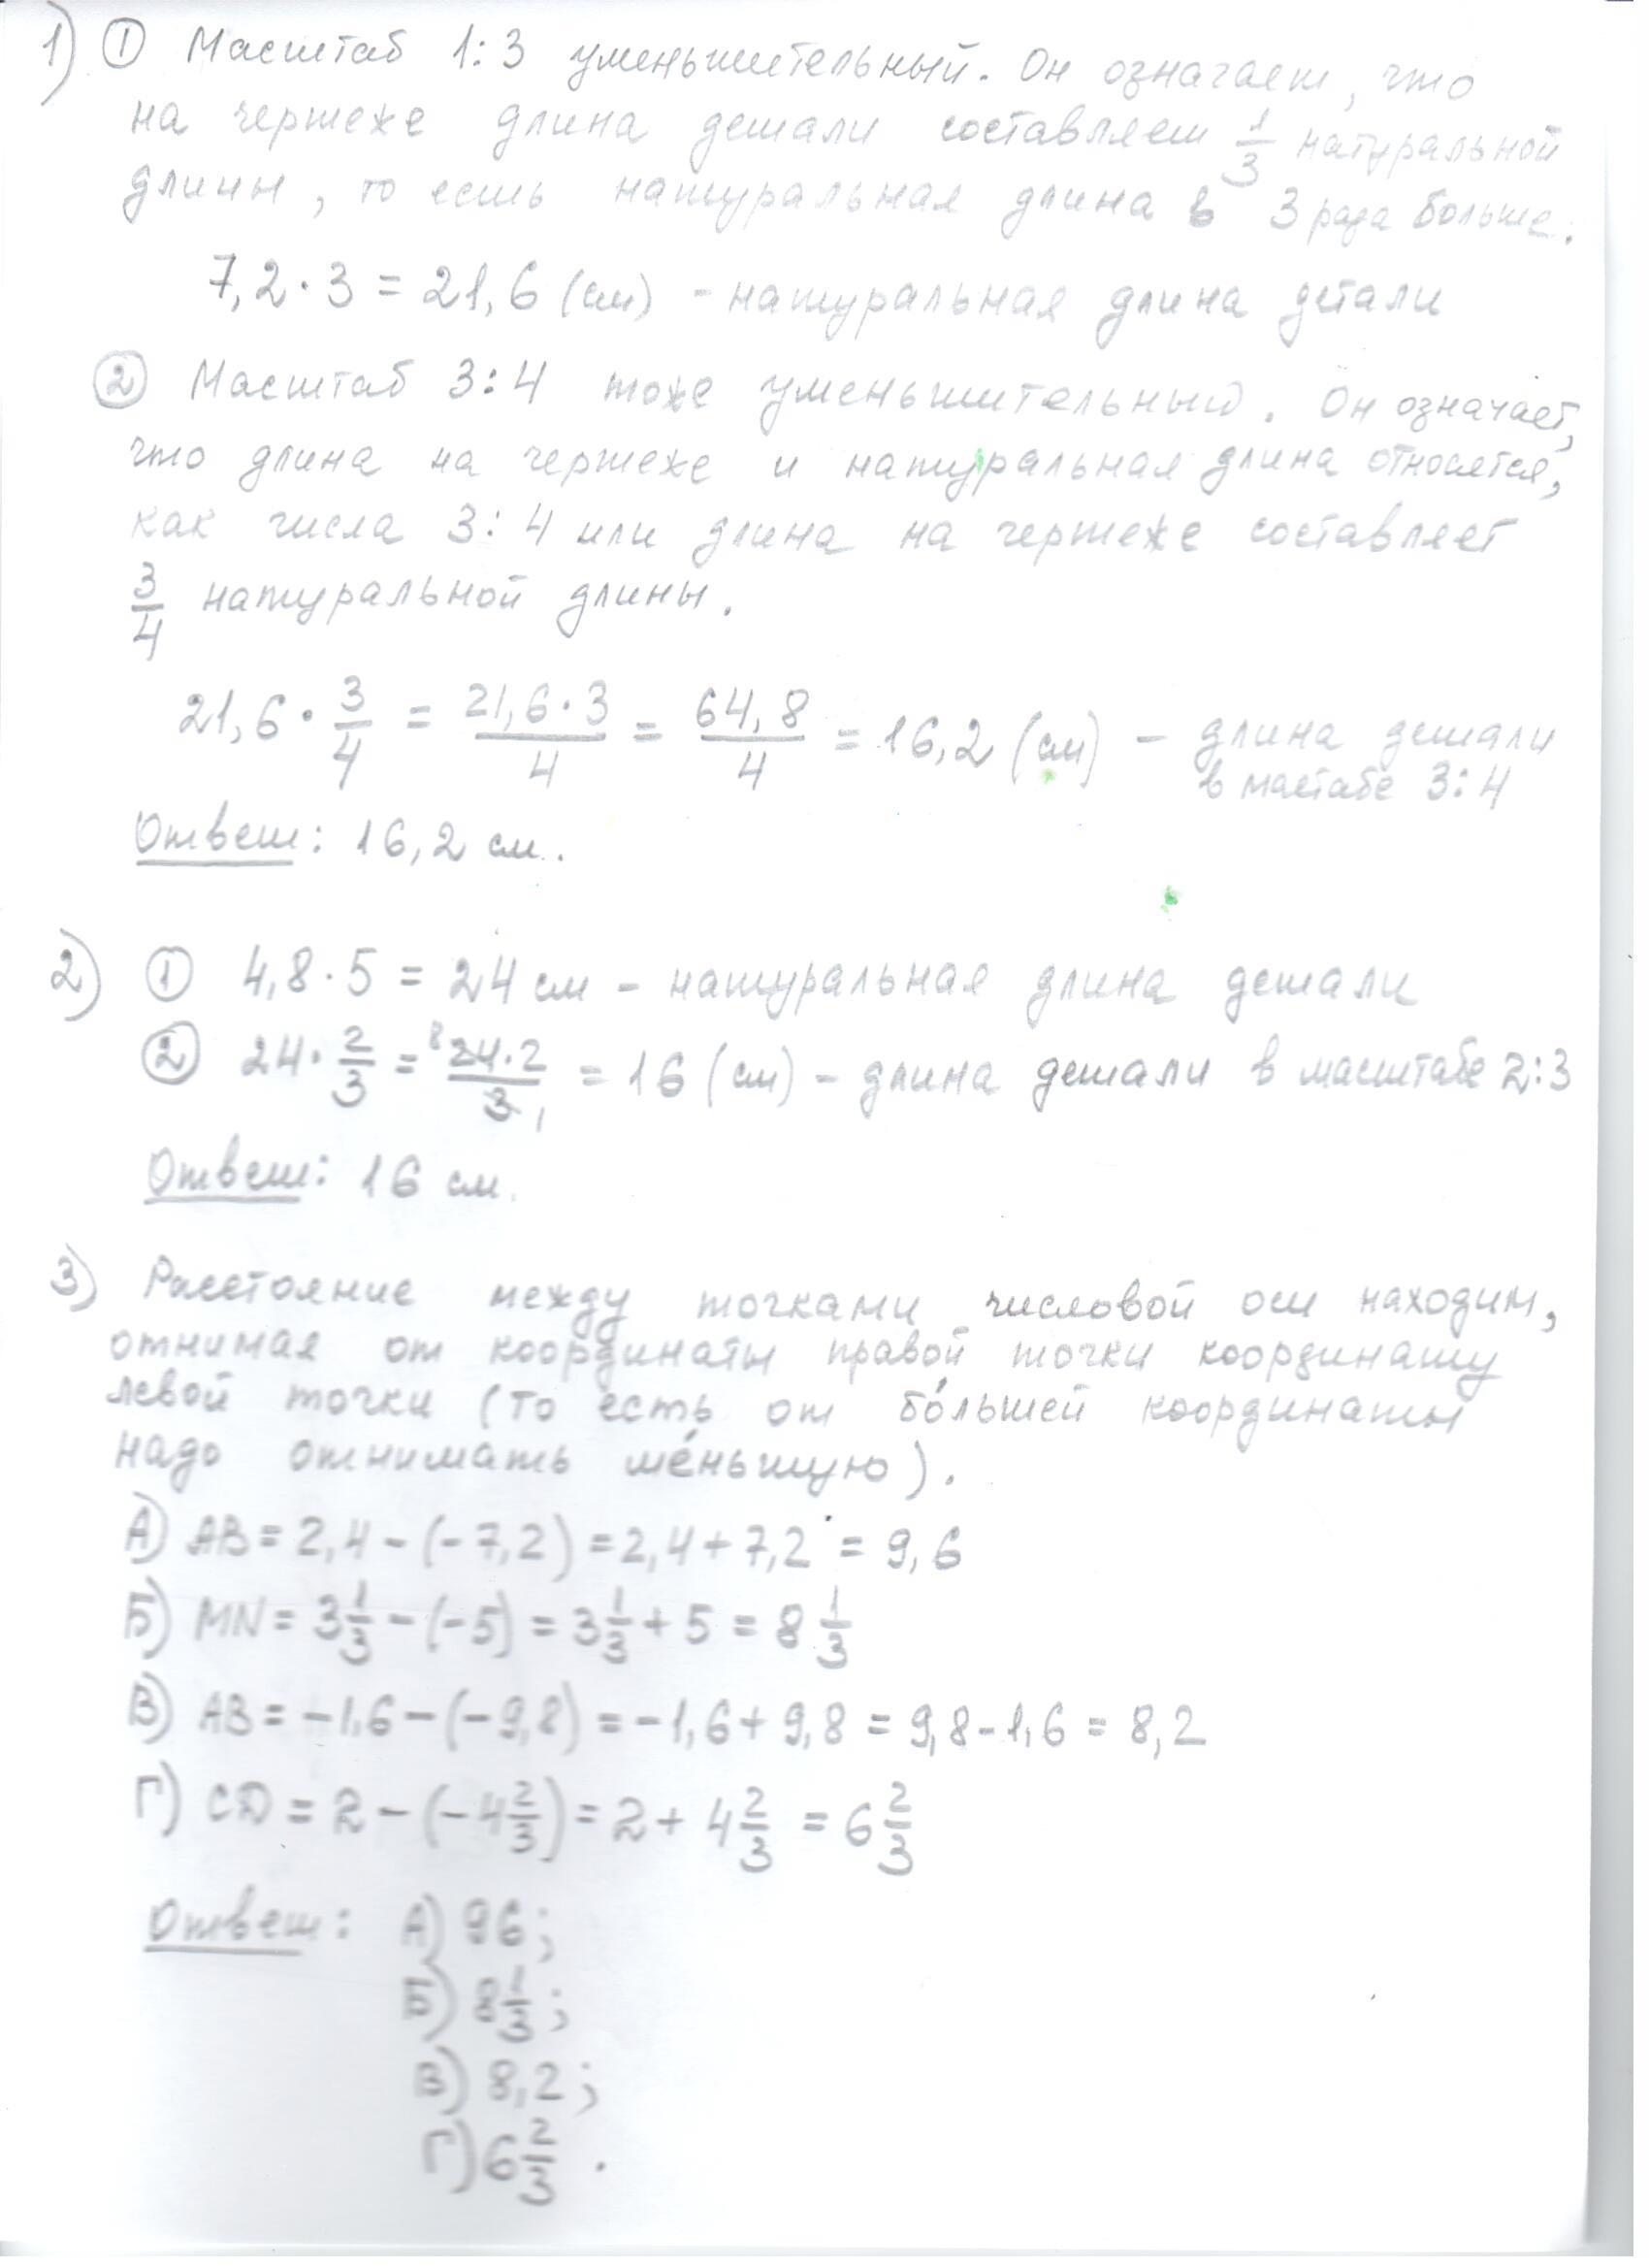 1) ① Масштаб 1:3 уменьшительный. Он означает, что
на чертеже длина детали составляет 1/3 натуральной
длины, то есть натуральная длина в 3 раза больше.
7,2·3 = 21,6 (см) - натуральная длина детали
② Масштаб 3:4 тоже уменьшительный. Он означает,
что длина на чертеже и натуральная длина относятся,
как числа 3:4 или длина на чертеже составляет
3/4 натуральной длины.
21,6 · 3/4 = 21,6·3/4 = 64,8/4 = 16,2 (см) - длина детали
в мастабе 3:4
Ответ: 16,2 см.
2) ① 4,8·5 = 24 см - натуральная длина детали
② 24·2/3 = 8 24·2/3 1 = 16 (см) - длина детали в масштабе 2:3
Ответ: 16 см.
3) Расстояние между точками числовой оси находим,
отнимая от координаты правой точки координату
левой точки (то есть от бо́льшей координаты
надо отнимать ме́ньшую).
А) AB = 2,4 - (-7,2) = 2,4 + 7,2 = 9,6
Б) MN = 3 1/3 - (-5) = 3 1/3 + 5 = 8 1/3
В) AB = -1,6 - (-9,8) = -1,6 + 9,8 = 9,8 - 1,6 = 8,2
Г) CD = 2 - (-4 2/3) = 2 + 4 2/3 = 6 2/3
Ответ: А) 96;
Б) 8 1/3;
В) 8,2;
Г) 6 2/3.